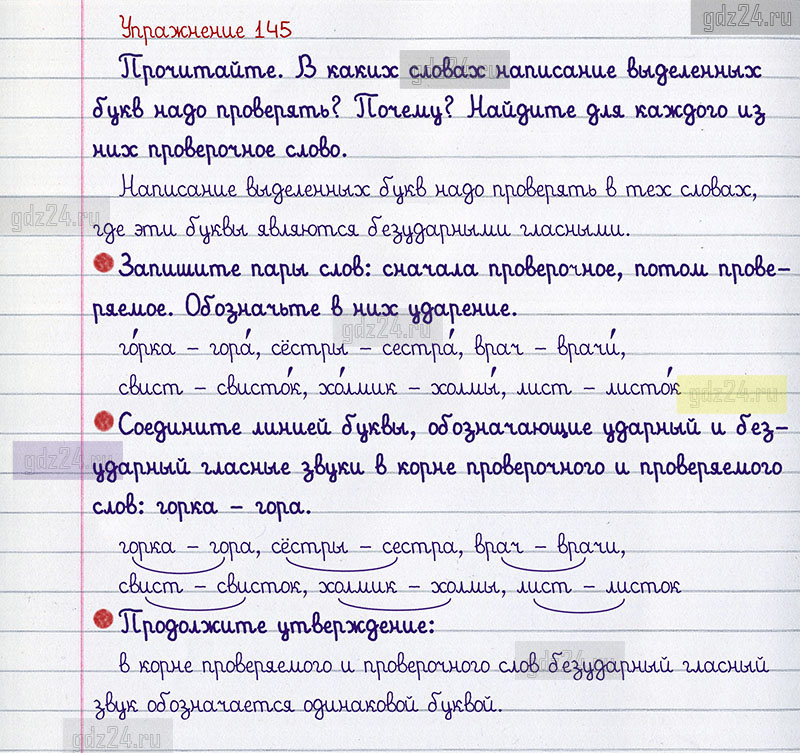 gdz24.ru
Упражнение 145
Прочитайте. В каких словах написание выделенных
gdz24.ru
букв надо проверять? Почему? Найдите для каждого из
них проверочное слово.
Написание выделенных букв надо проверять в тех словах,
gdz24.ru
где эти буквы являются безударными гласными.
Запишите пары слов: сначала проверочное, потом прове-
ряемое. Обозначьте в них ударение.
gdz24.ru
го́рка – гора́, сёстры – сестра́, врач – врачи́,
свист – свисто́к, хо́лмик – холмы́, лист – листо́к
gdz24.ru
Соедините линией буквы, обозначающие ударный и без-
gdz24.ru
ударный гласные звуки в корне проверочного и проверяемого
слов: горка – гора.
горка – гора, сёстры – сестра, врач – врачи,
свист – свисток, холмик – холмы, лист – листок
Продолжите утверждение:
в корне проверяемого и проверочного слов безударный гласный
gdz24.ru
звук обозначается одинаковой буквой.
gdz24.ru